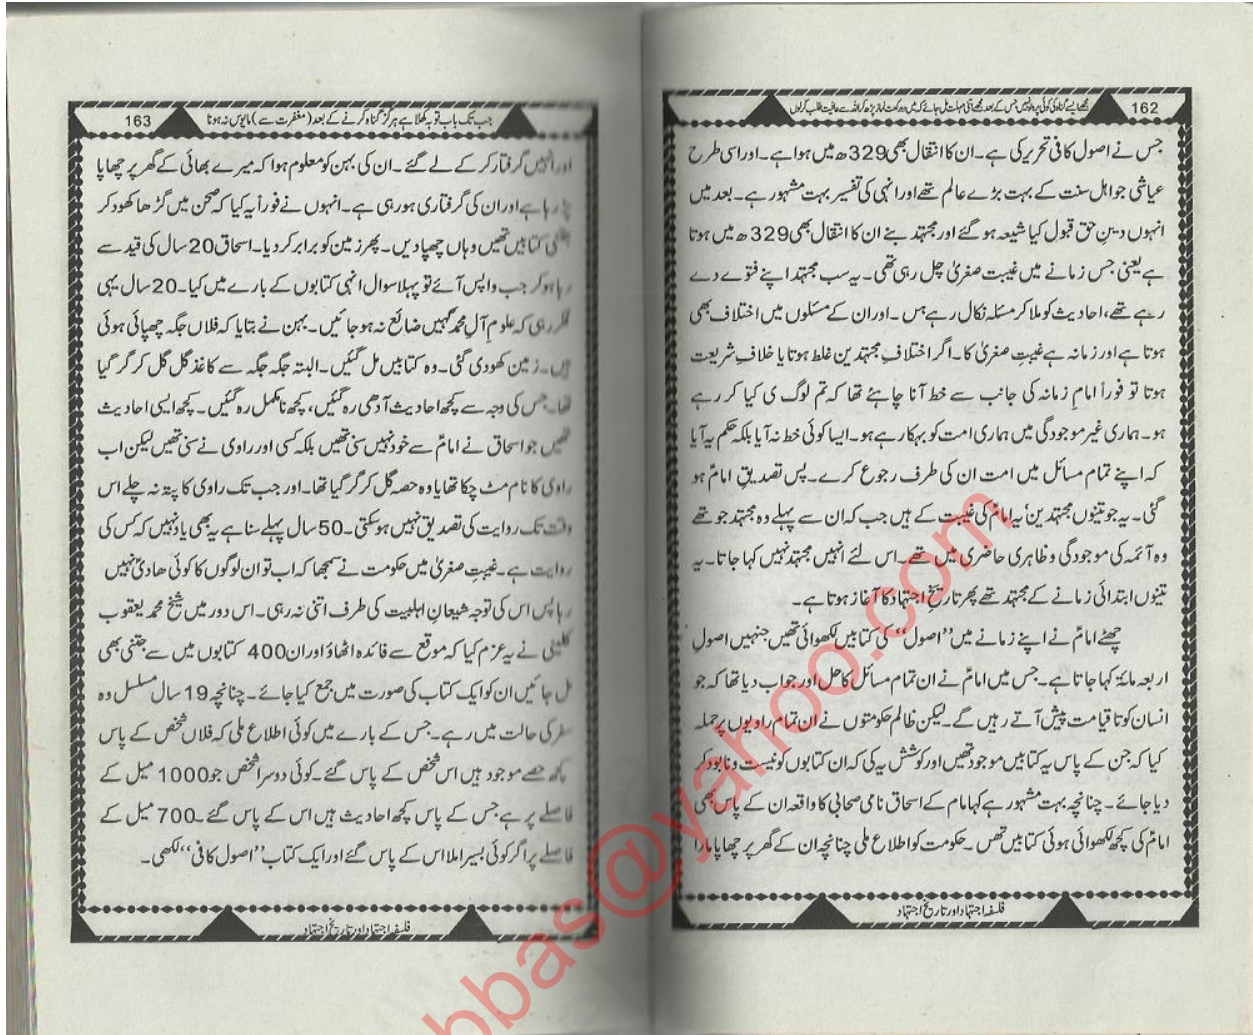 162
مجھے ایسے گناہ کی کوئی پرواہ نہیں جس کے بعد مجھے اتنی مہلت مل جائے کہ میں دو رکعت نماز پڑھ کر اللہ سے عافیت طلب کر لوں
جس نے اصول کافی تحریر کی ہے۔ ان کا انتقال بھی 329ھ میں ہوا ہے۔ اور اسی طرح
عیاشی جو اہل سنت کے بہت بڑے عالم تھے اور انہی کی تفسیر بہت مشہور ہے۔ بعد میں
انہوں دینِ حق قبول کیا شیعہ ہو گئے اور مجتہد بنے ان کا انتقال بھی 329ھ میں ہوتا
ہے یعنی جس زمانے میں غیبت صغریٰ چل رہی تھی۔ یہ سب مجتہد اپنے فتوے دے
رہے تھے، احادیث کو ملا کر مسئلہ نکال رہے ہس۔ اور ان کے مسئلوں میں اختلاف بھی
ہوتا ہے اور زمانہ ہے غیبتِ صغریٰ کا۔ اگر اختلافِ مجتہدین غلط ہوتا یا خلافِ شریعت
ہوتا تو فوراً امامِ زمانہ کی جانب سے خط آنا چاہئے تھا کہ تم لوگ ی کیا کر رہے
ہو۔ ہماری غیر موجودگی میں ہماری امت کو بہکا رہے ہو۔ ایسا کوئی خط نہ آیا بلکہ حکم یہ آیا
کہ اپنے تمام مسائل میں امت ان کی طرف رجوع کرے۔ پس تصدیقِ امامؑ ہو
گئی۔ یہ جو تینوں مجتہدین یہ امامؑ کی غیبت کے ہیں جب کہ ان سے پہلے وہ مجتہد جو تھے
وہ آئمہ کی موجودگی و ظاہری حاضری میں تھے۔ اس لئے انہیں مجتہد نہیں کہا جاتا۔ یہ
تینوں ابتدائی زمانے کے مجتہد تھے پھر تاریخِ اجتہاد کا آغاز ہوتا ہے۔
چھٹے امامؑ نے اپنے زمانے میں ’’اصول‘‘ کی کتابیں لکھوائی تھیں جنہیں اصولِ
اربعہ مائۃ کہا جاتا ہے۔ جس میں امامؑ نے ان تمام مسائل کا حل اور جواب دیا تھا کہ جو
انسان کو تا قیامت پیش آتے رہیں گے۔ لیکن ظالم حکومتوں نے ان تمام راویوں پر حملہ
کیا کہ جن کے پاس یہ کتابیں موجود تھیں اور کوشش یہ کی کہ ان کتابوں کو نیست و نابود کر
دیا جائے۔ چنانچہ بہت مشہور ہے کہا مام کے اسحاق نامی صحابی کا واقعہ ان کے پاس بھی
امامؑ کی کچھ لکھوائی ہوئی کتابیں تھس۔ حکومت کو اطلاع ملی چنانچہ ان کے گھر پر چھاپا مارا
فلسفہ اجتہاد اور تاریخ اجتہاد
163
جب تک باب توبہ کھلا ہے ہرگز گناہ کرنے کے بعد (مغفرت سے) مایوس نہ ہونا
اور انہیں گرفتار کر کے لے گئے۔ ان کی بہن کو معلوم ہوا کہ میرے بھائی کے گھر پر چھاپا
پڑ رہا ہے اور ان کی گرفتاری ہو رہی ہے۔ انہوں نے فوراً یہ کیا کہ صحن میں گڑھا کھود کر
جتنی کتابیں تھیں وہاں چھپا دیں۔ پھر زمین کو برابر کر دیا۔ اسحاق 20 سال کی قید سے
رہا ہو کر جب واپس آئے تو پہلا سوال انہی کتابوں کے بارے میں کیا۔ 20 سال یہی
فکر رہی کہ علومِ آلِ محمدؐ کہیں ضائع نہ ہو جائیں۔ بہن نے بتایا کہ فلاں جگہ چھپائی ہوئی
ہیں۔ زمین کھودی گئی۔ وہ کتابیں مل گئیں۔ البتہ جگہ جگہ سے کاغذ گل گل کر گر گیا
تھا۔ جس کی وجہ سے کچھ احادیث آدھی رہ گئیں، کچھ نامکمل رہ گئیں۔ کچھ ایسی احادیث
تھیں جو اسحاق نے امامؑ سے خود نہیں سنی تھیں بلکہ کسی اور راوی نے سنی تھیں لیکن اب
راوی کا نام مٹ چکا تھا یا وہ حصہ گل کر گر گیا تھا۔ اور جب تک راوی کا پتہ نہ چلے اس
وقت تک روایت کی تصدیق نہیں ہو سکتی۔ 50 سال پہلے سنا ہے یہ بھی یاد نہیں کہ کس کی
روایت ہے۔ غیبتِ صغریٰ میں حکومت نے سمجھا کہ اب تو ان لوگوں کا کوئی ھادیؑ نہیں
رہا پس اس کی توجہ شیعانِ اہلبیت کی طرف اتنی نہ رہی۔ اس دور میں شیخ محمد یعقوب
کلینیؒ نے یہ عزم کیا کہ موقع سے فائدہ اٹھاؤ اور ان 400 کتابوں میں سے جتنی بھی
مل جائیں ان کو ایک کتاب کی صورت میں جمع کیا جائے۔ چنانچہ 19 سال مسلسل وہ
سفر کی حالت میں رہے۔ جس کے بارے میں کوئی اطلاع ملی کہ فلاں شخص کے پاس
کچھ حصے موجود ہیں اس شخص کے پاس گئے۔ کوئی دوسرا شخص جو 1000 میل کے
فاصلے پر ہے جس کے پاس کچھ احادیث ہیں اس کے پاس گئے۔ 700 میل کے
فاصلے پر اگر کوئی بسیر املا اس کے پاس گئے اور ایک کتاب ’’اصول کافی‘‘ لکھی۔
فلسفہ اجتہاد اور تاریخ اجتہاد
bbas@yahoo.com